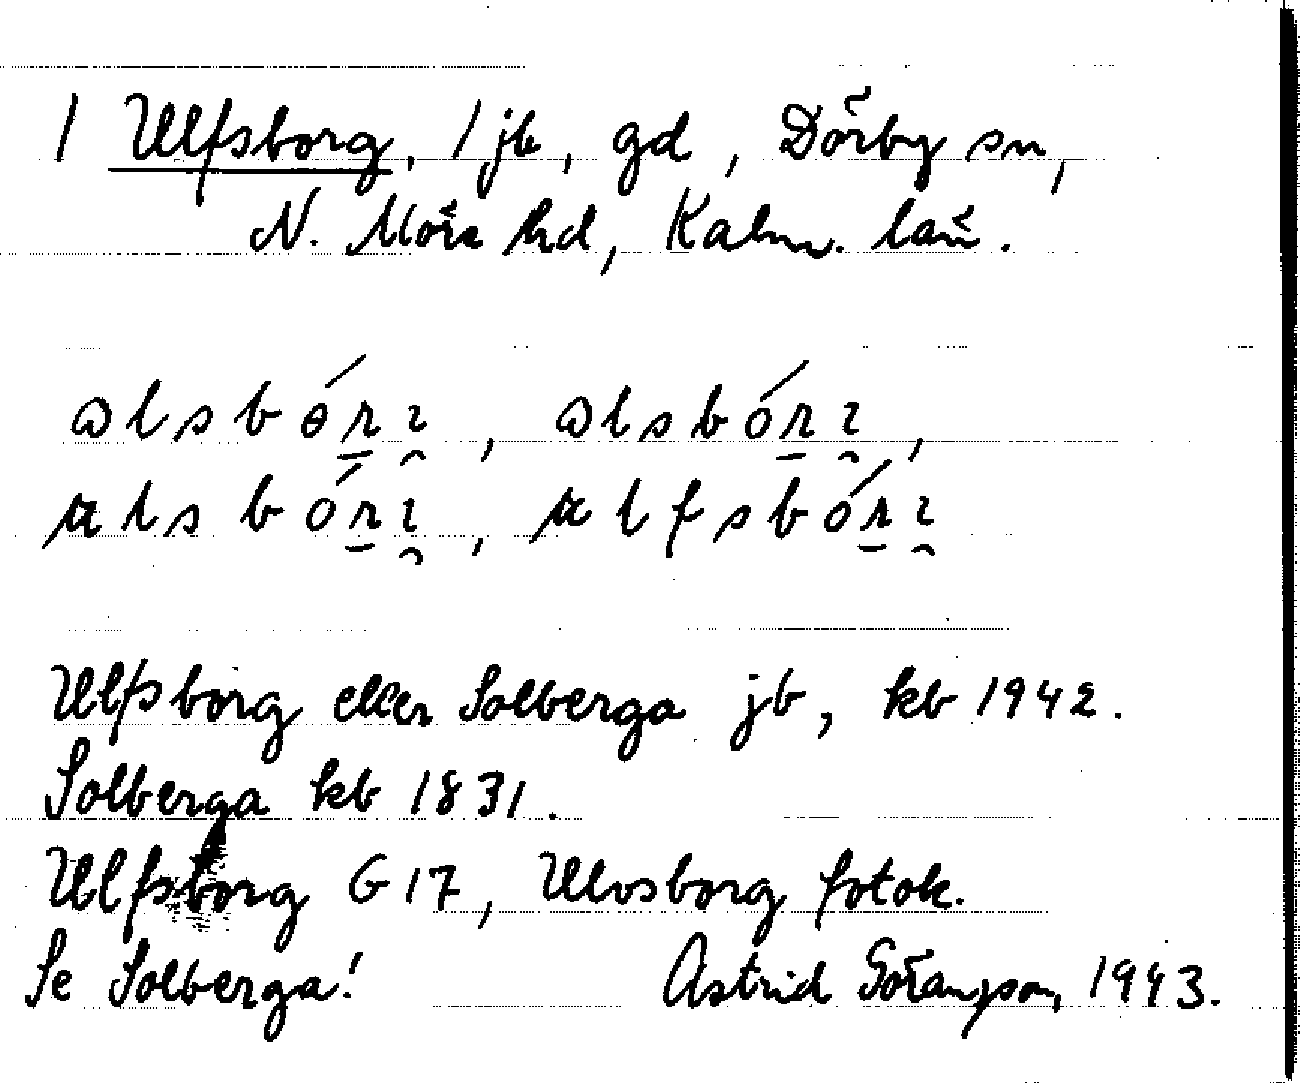 1 Ulfsborg, 1 jb, gd, Dörby sn,
N. Möre hd, Kalm. län.
Ulfsborg eller Solberga jb, kb 1942.
Solberga kb 1831.
Ulfsborg G 17, Ulvsborg fotok.
Se Solberga! Astrid Göransson, 1943.